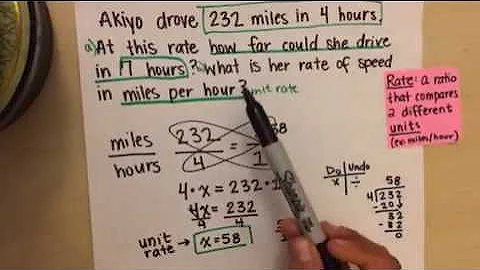 Akiyo drove 232 miles in 4 hours.
a) At this rate how far could she drive
in 7 hours? b) What is her rate of speed
in miles per hour?
unit rate
Rate: a ratio
that compares
2 different
units
(ex: miles/hour)
miles 232 = 58
hours 4 1
4·x = 232·1
4x = 232
4 4
unit rate → x=58
Do Undo
x ÷
58
4 232
-20↓
32
-32
0